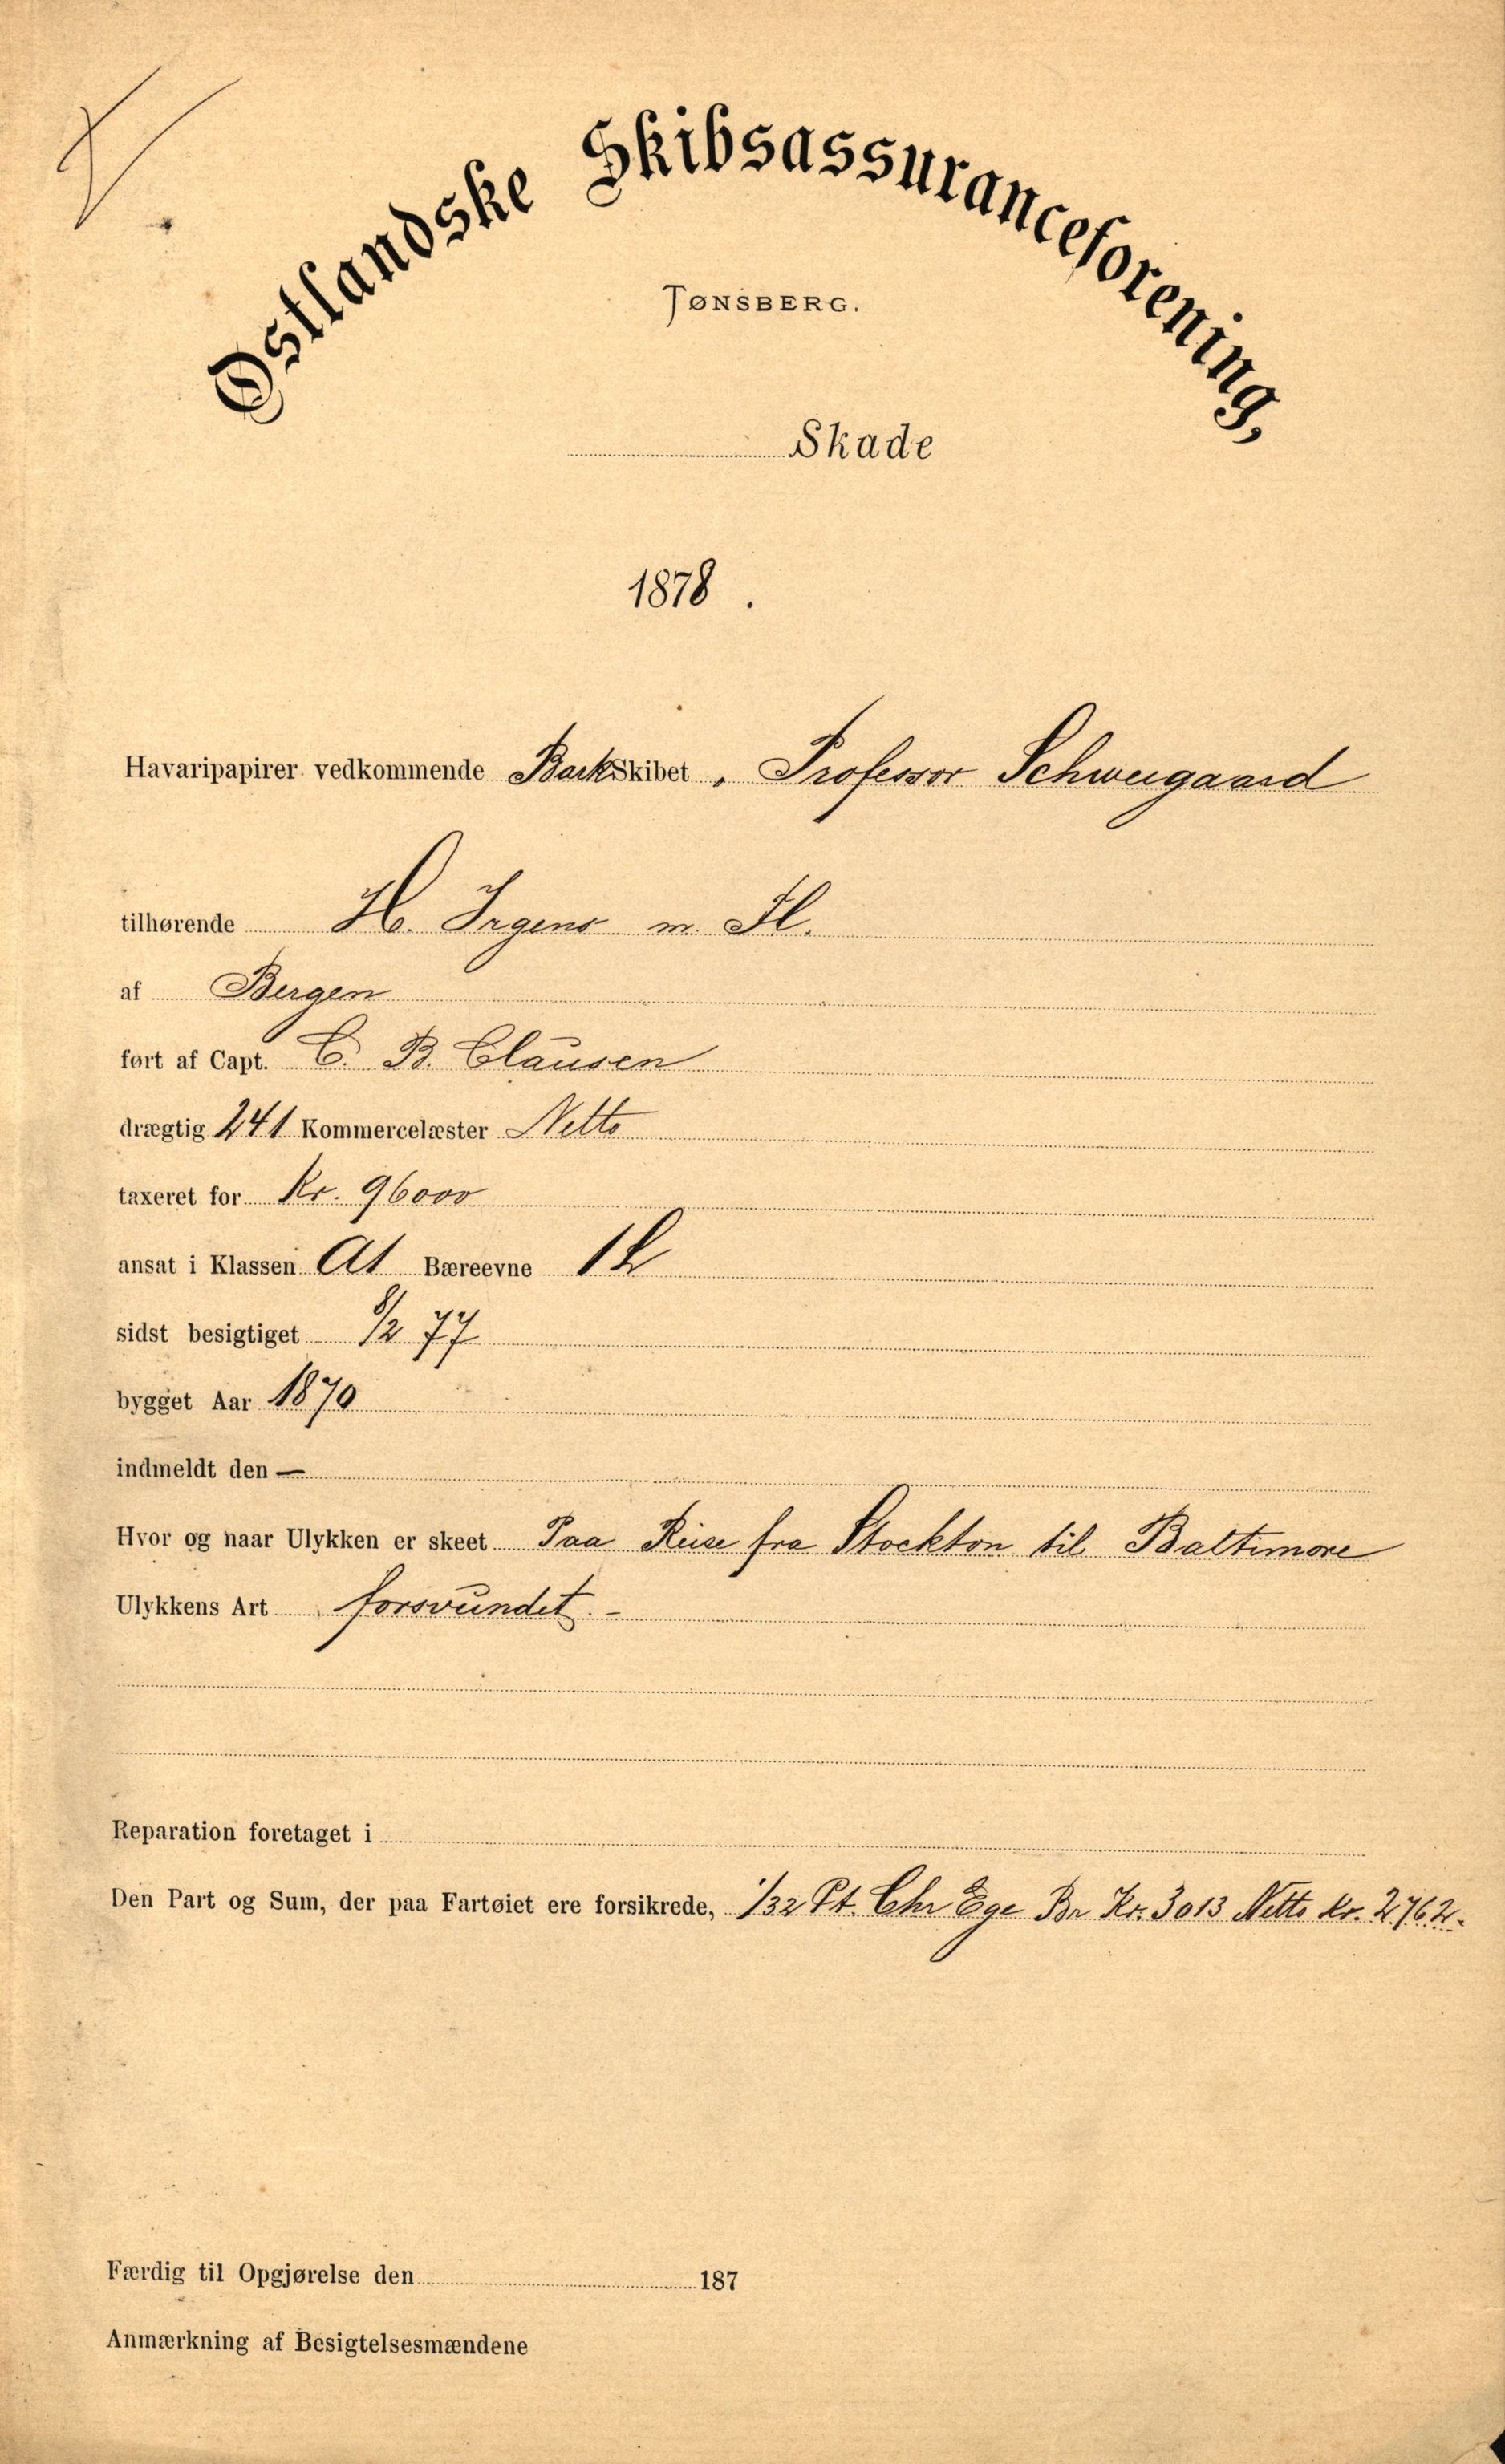 Østlandske Skibsassuranceforening,
TØNSBERG.
Skade
1878.
Havaripapirer vedkommende Barkskibet „ Professor Schweigaard
tilhørende H. Irgens m. Fl.
af Bergen
ført af Capt. C. B. Clausen
drægtig 241 Kommercelæster Netto
taxeret for Kr. 96000
ansat i Klassen A1 Bæreevne
sidst besigtiget 8/2 77
bygget Aar 1870
indmeldt den —
Hvor og naar Ulykken er skeet Paa Reise fra Stockton til Baltimore
Ulykkens Art forsvundet. -
Reparation foretaget i
Den Part og Sum, der paa Fartøiet ere forsikrede, 1/32 Pt. Chr Ege Br Kr. 3013 Netto Kr. 2762.
Færdig til Opgjørelse den 187
Anmærkning af Besigtelsesmændene